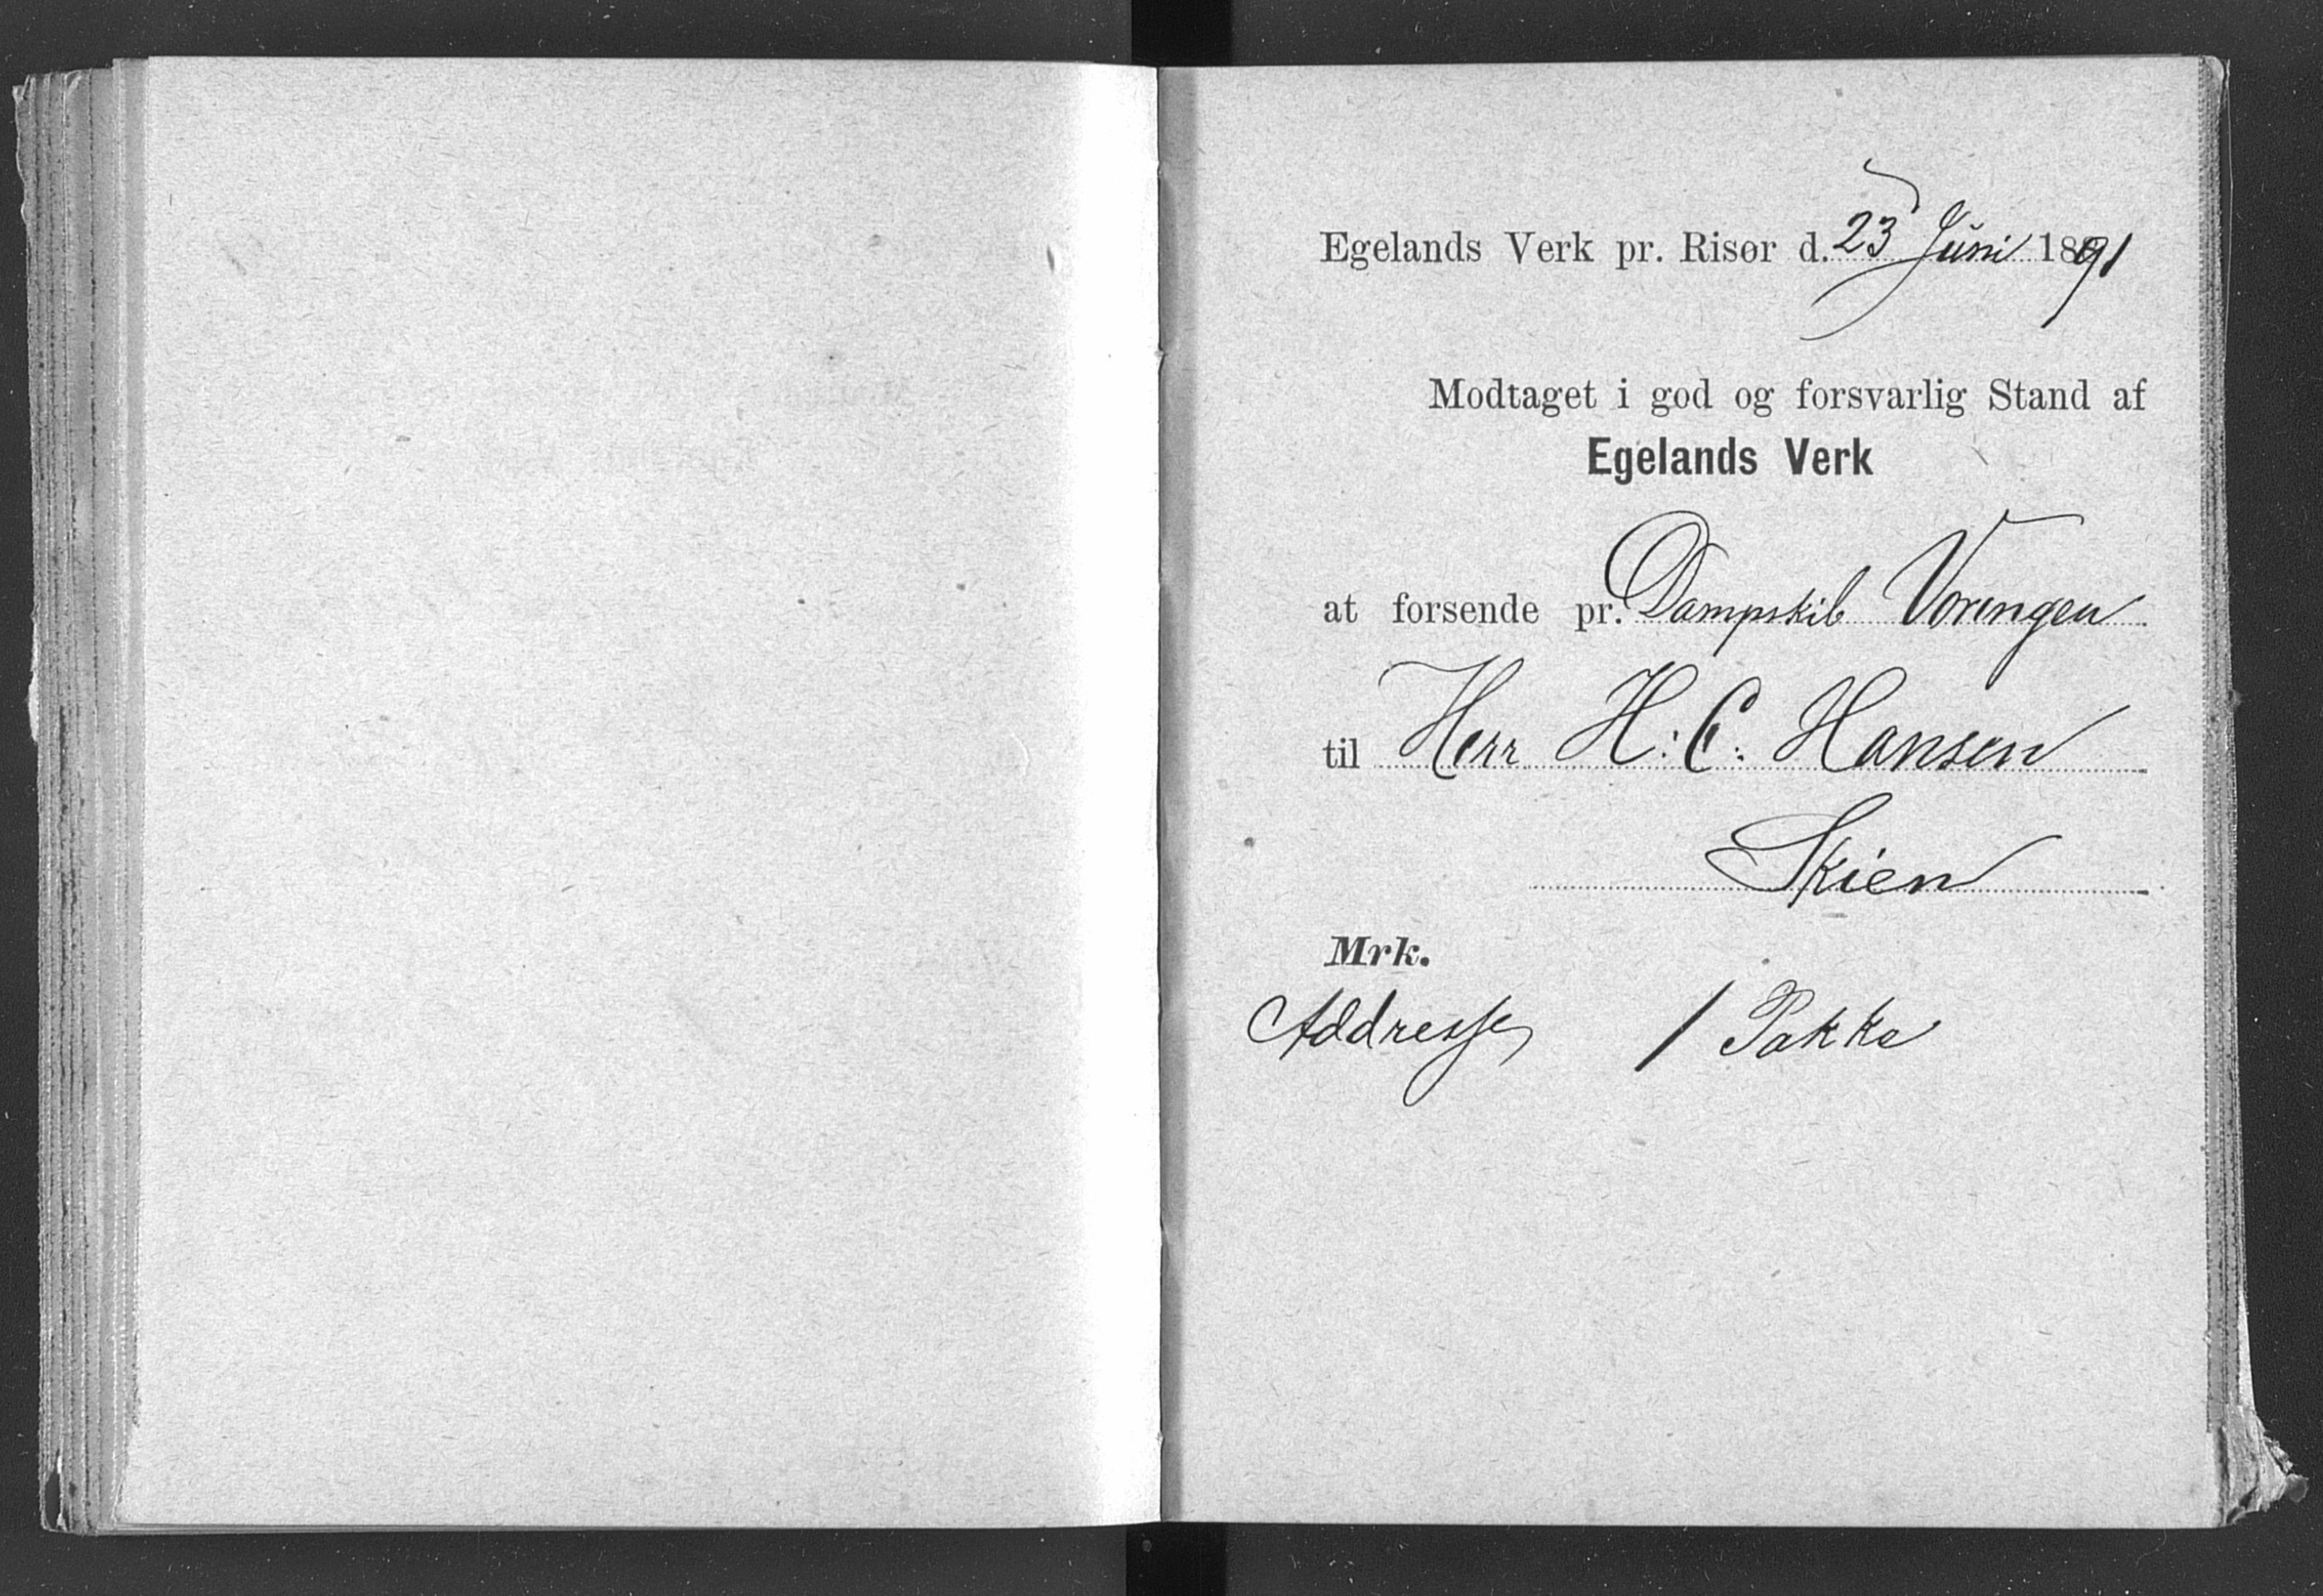 Egelands Verk pr. Risør d. 23 Juni 1891
Modtaget i god og forsvarlig Stand af
Egelands Verk
at forsende pr. Dampskib Voringen
til Herr H: C: Hansen
Skien
Mrk.
Addresse 1 Pakke